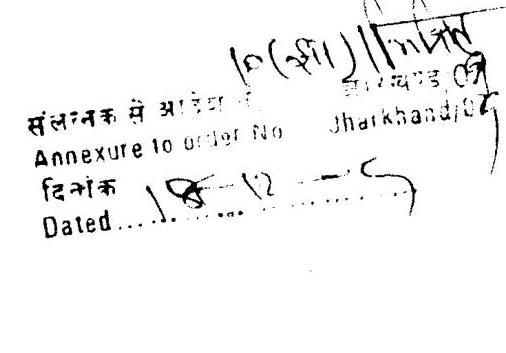 10(सी)
संलग्नक से आदेश
झारखण्ड
Annexure to order No Jharkhand/07
दिनांक
Dated.... 18-12-5